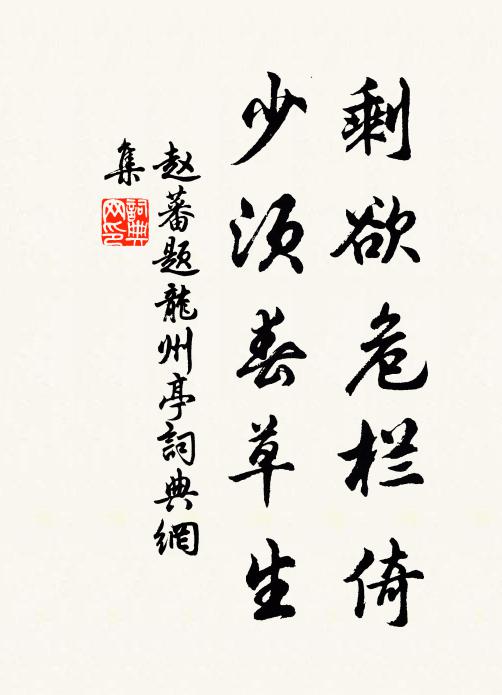 剩欲危栏倚
少须春草生
赵蕃题龍州亭詞典網
集
詞典
网印